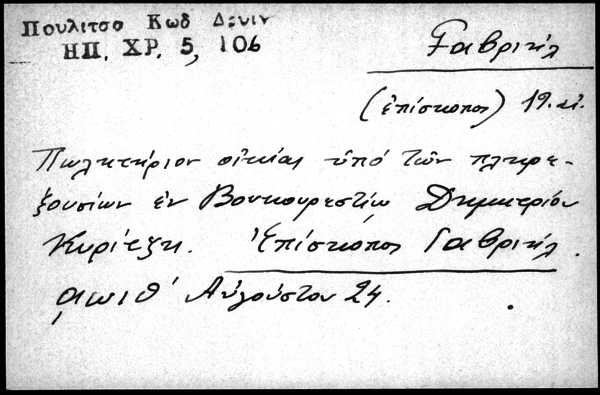 Πουλιτσο Κωδ Δενιν
ΗΠ. ΧΡ. 5, 106
Γαβριήλ
(ἐπίσκοπος) 19. αἰ.
Πωλητήριον οἰκίας ὑπό τῶν πληρε-
ξουσίων ἐν Βουκουρεστίῳ Δημητρίου
Κυρίτζη. Ἐπίσκοπος Γαβριήλ.
͵αωιθ΄ Αὐγούστου 24.